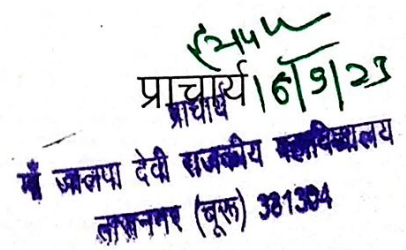 प्राचार्य 16/9/23
प्राचार्य
माँ जालपा देवी राजकीय महाविद्यालय
तारानगर (चूरू) 381304